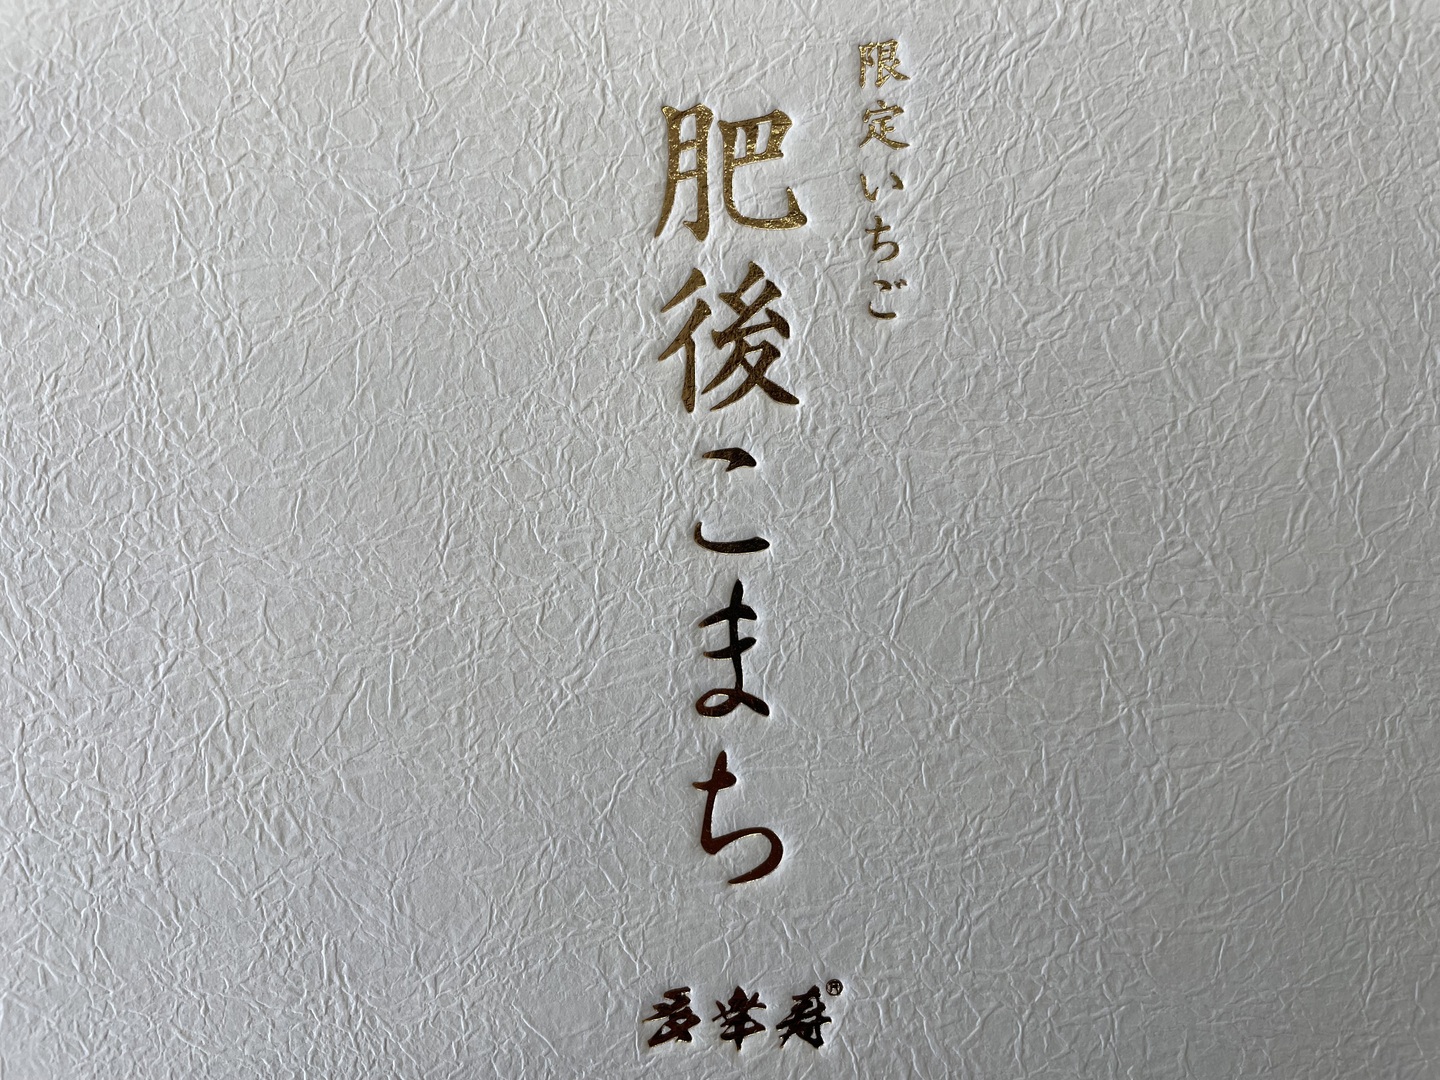 限定いちご
肥後こまち
多楽寿®